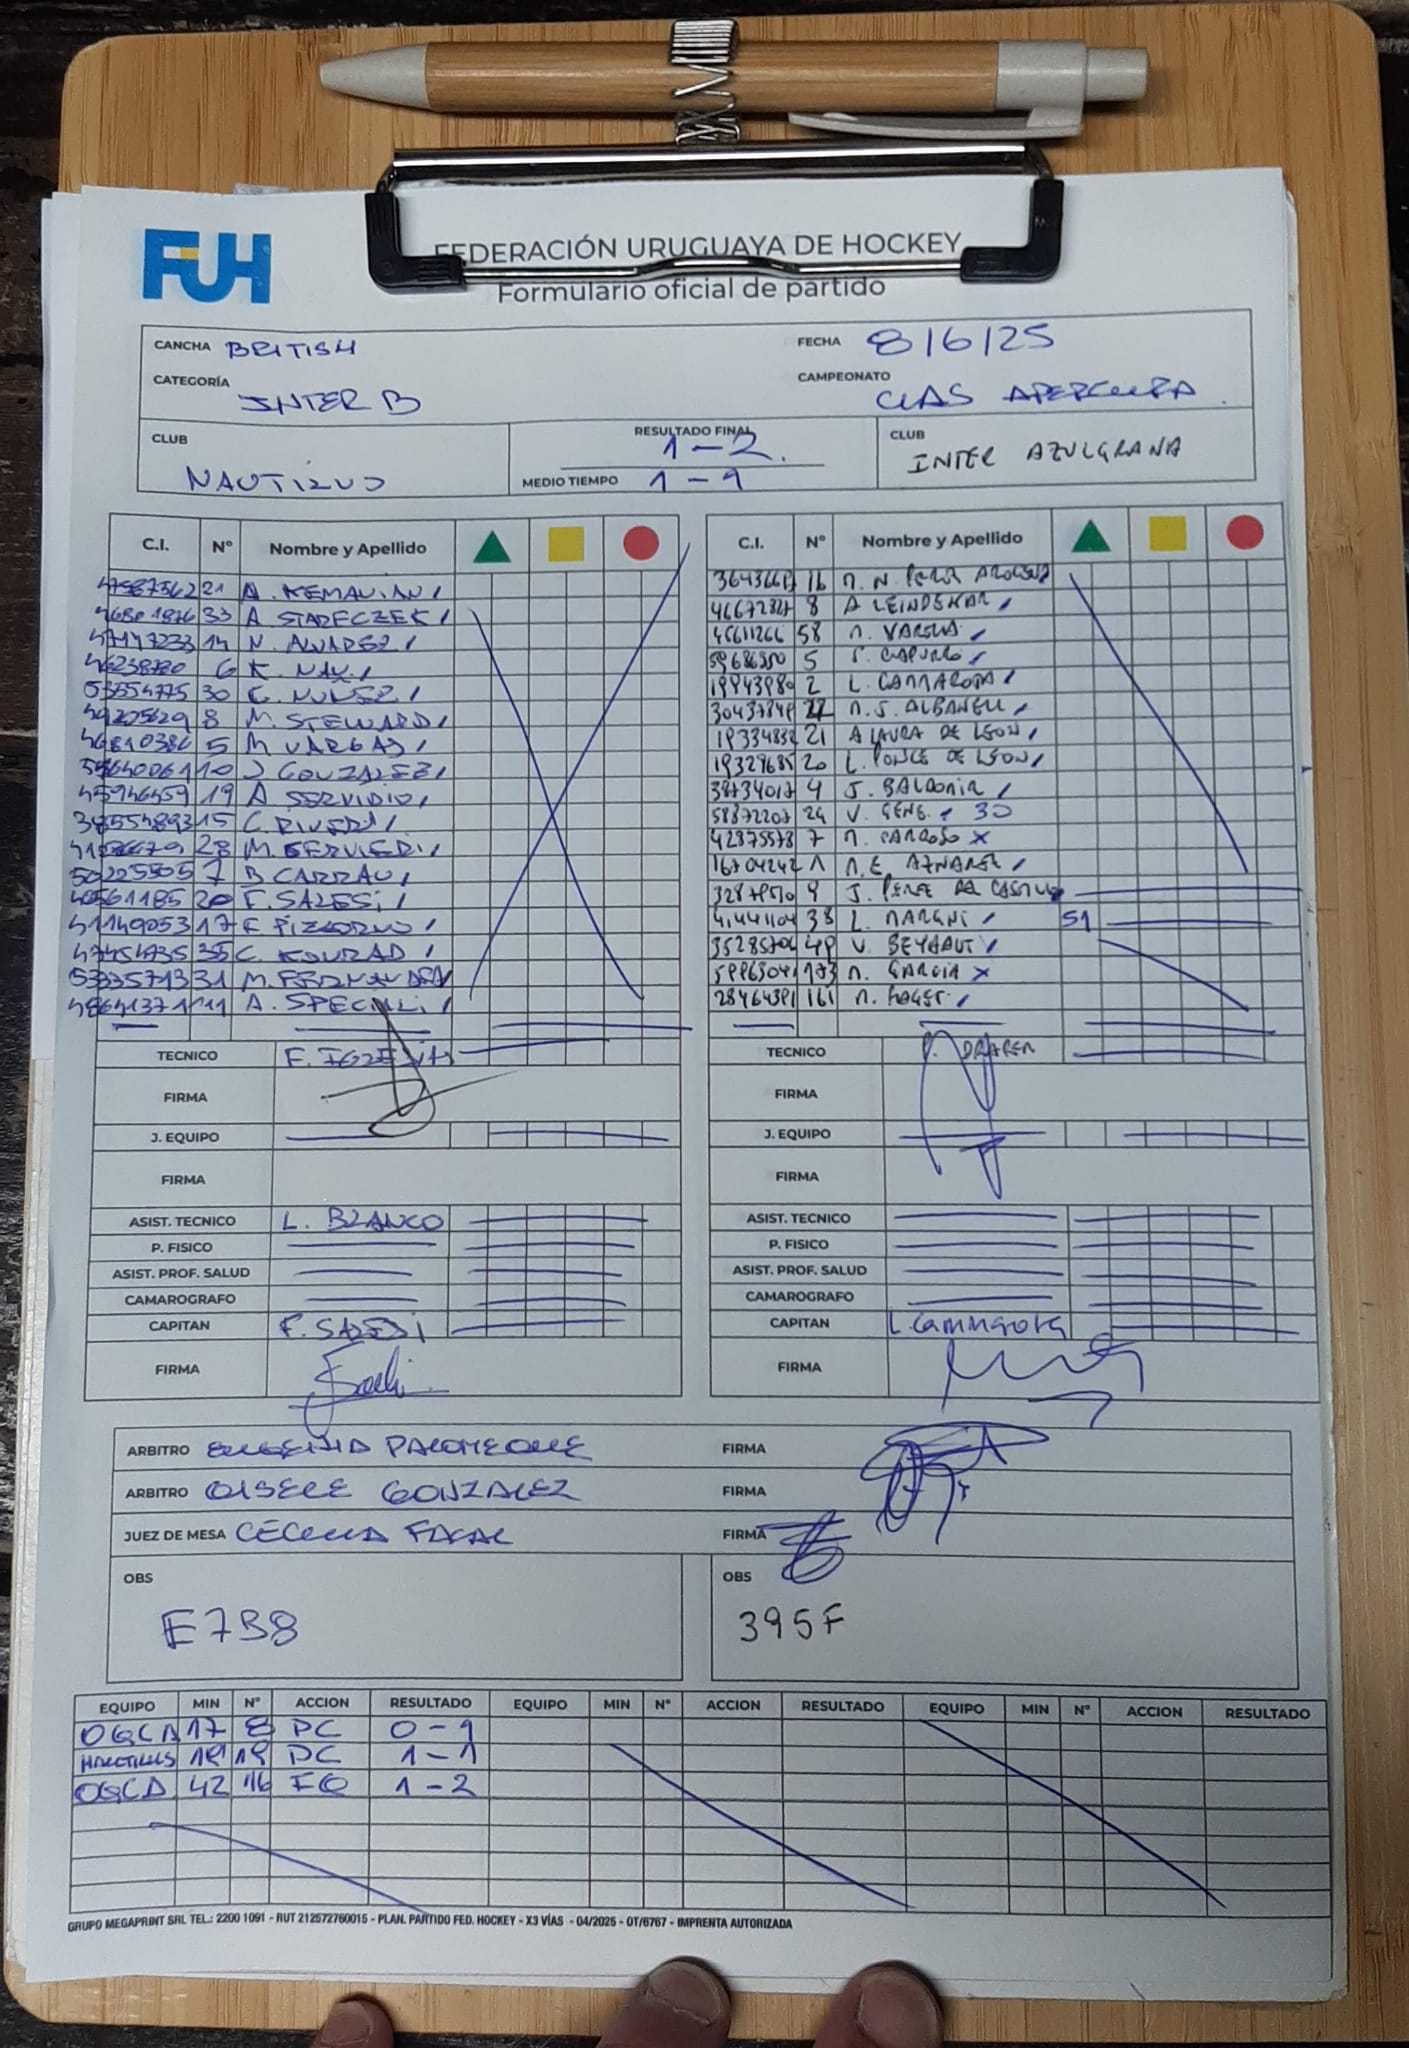 FUH
FEDERACIÓN URUGUAYA DE HOCKEY
Formulario oficial de partido
CANCHA BRITISH FECHA 8/6/25
CATEGORÍA INTER B CAMPEONATO CLAS APERTURA
CLUB NAUTILUS RESULTADO FINAL 1-2 CLUB INTER AZULGRANA
MEDIO TIEMPO 1-1
C.I. Nº Nombre y Apellido C.I. Nº Nombre y Apellido
21 A. KEMAVIAN 16 M. N. PEREZ AROCENA
33 A. STARECZEK 46672827 8 A LEINDEKAR
14 N. ALVAREZ 45611266 58 M. VARELA
46238780 6 K. NAX 59686350 5 CAPURRO
53554775 30 C. NUÑEZ 2 L. CAMMAROTA
8 M. STEWARD M. J. ALBANELL
46810386 5 M VARGAS 21 A LAURA DE LEON
10 J. GONZALEZ 19329685 20 L. PONCE DE LEON
45946459 19 A. SERVIDIO 38734017 4 J. BALDOMIR
15 C. RIVERI 58872207 24 V. GENS 30
23 M. SERVIERI 42875578 7 M. CARDOSO X
50225505 7 B CARRAU 16704242 1 M. E. AZNAREZ
20 F. SALESI 9 J. PEREZ DEL CASTILLO
17 F PIZZORNO 38 L. MARGNI 51
35 C. KONRAD V. BEYHAUT
53335713 31 M. FERNANDEZ 173 M. GARCIA X
48641371 11 A. SPECIALI 28464391 161 M.
TECNICO F. IGLESIAS TECNICO
FIRMA FIRMA
J. EQUIPO J. EQUIPO
FIRMA FIRMA
ASIST. TECNICO L. BLANCO ASIST. TECNICO
P. FISICO P. FISICO
ASIST. PROF. SALUD ASIST. PROF. SALUD
CAMAROGRAFO CAMAROGRAFO
CAPITAN F. SALESI CAPITAN L. Cammarota
FIRMA FIRMA
ARBITRO EUGENIA PALOMEQUE FIRMA
ARBITRO GISELE GONZALEZ FIRMA
JUEZ DE MESA CECILIA FACAL FIRMA
OBS E7B8 OBS 395F
EQUIPO MIN Nº ACCION RESULTADO EQUIPO MIN Nº ACCION RESULTADO EQUIPO MIN Nº ACCION RESULTADO
OGCA 17 8 PC 0-1
NAUTILUS 19 19 PC 1-1
OGCA 42 16 FG 1-2
GRUPO MEGAPRINT SRL TEL.: 2200 1091 - RUT 212572760015 - PLAN. PARTIDO FED. HOCKEY - X3 VÍAS - 04/2025 - OT/6767 - IMPRENTA AUTORIZADA